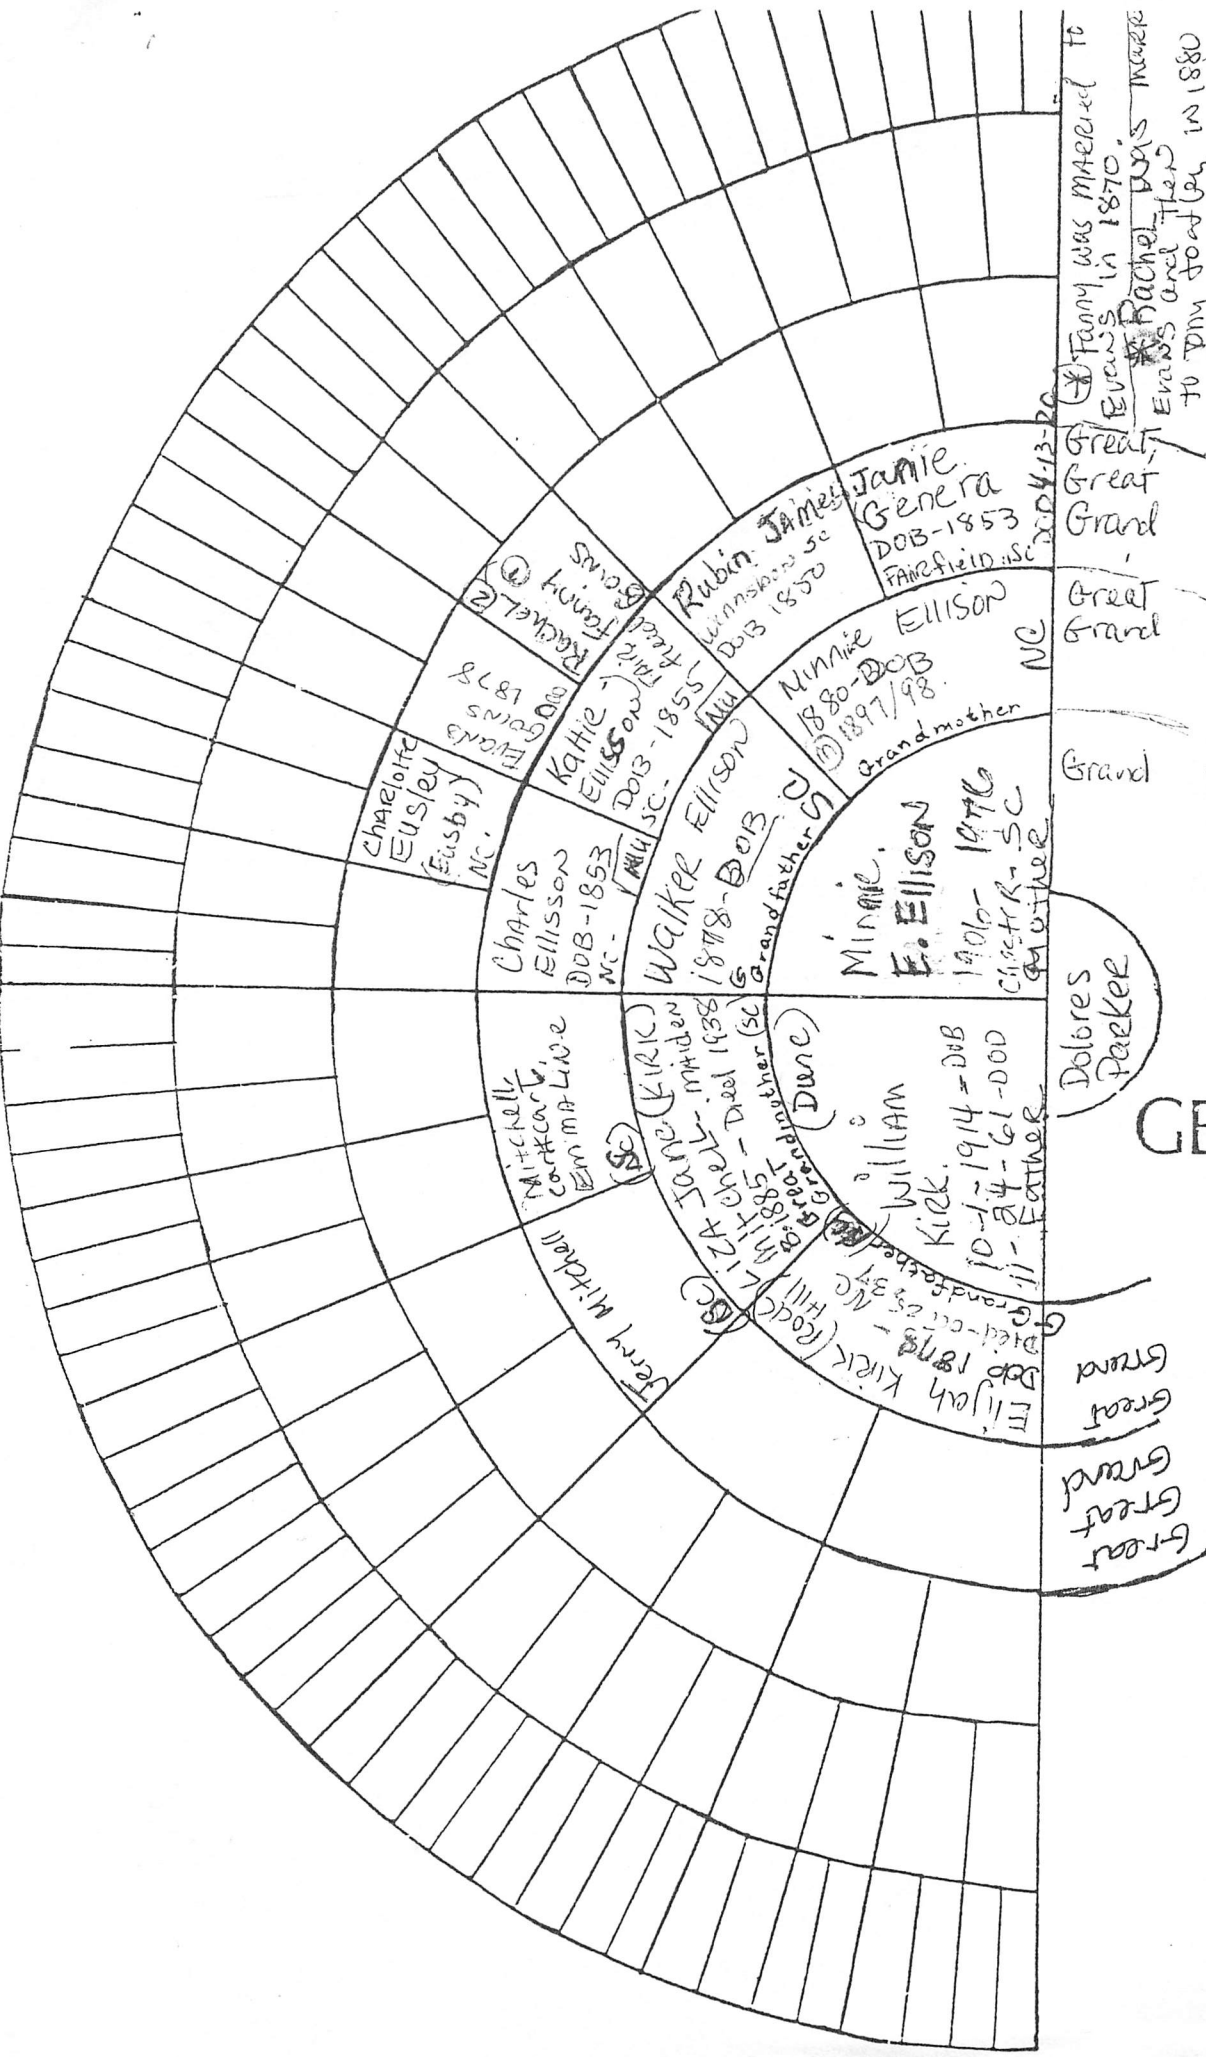 Dolores
Parker
William
Kirk.
10-1-1914 = DOB
11-24-61-DOD
Father
(Dune)
Minnie.
E. Ellison
1906-1976
SC
Mother
Elijah Kirk (Rock
Hill)
Dob 1878 - NC
Died-oct 25, 37
G Grandfather
Liza Jane (Kirk)
Mitchell - maiden
B. 1885 - Died 1938
Great Grandmother (SC)
Walker Ellison
1878-DOB
G Grandfather SC
Minnie Ellison
1880-DOB
① 1897/98.
Grandmother
NC
Jerry Mitchell
(SC)
Mitchell
Emmaline
(SC)
Charles
Ellisson
DOB-1853
NC-
MU
Kattie
Ellisson
DOB-1855,
SC-
MU
Rubin James
Winnsboro SC
DOB 1850
Janie
Genera
DOB-1853
Fairfield, SC
DOD 4-13-20
Charlotte
Eusley
(Eusby)
NC.
Evans
Goins
DOD 1878
Rachel ②
Fanny ①
Goins
Grand
Great
Grand
Great,
Great
Grand
Great
Grand
Great
Great
Grand
* Fanny was married to
Evans in 1870.
* Rachel was marr
Evans and then
to Tony in 1880
GE